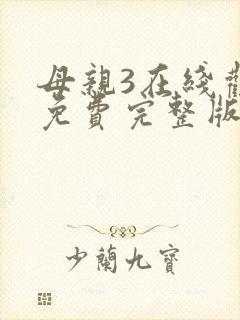 母親3在綫觀
免費完整版
少蘭九寶